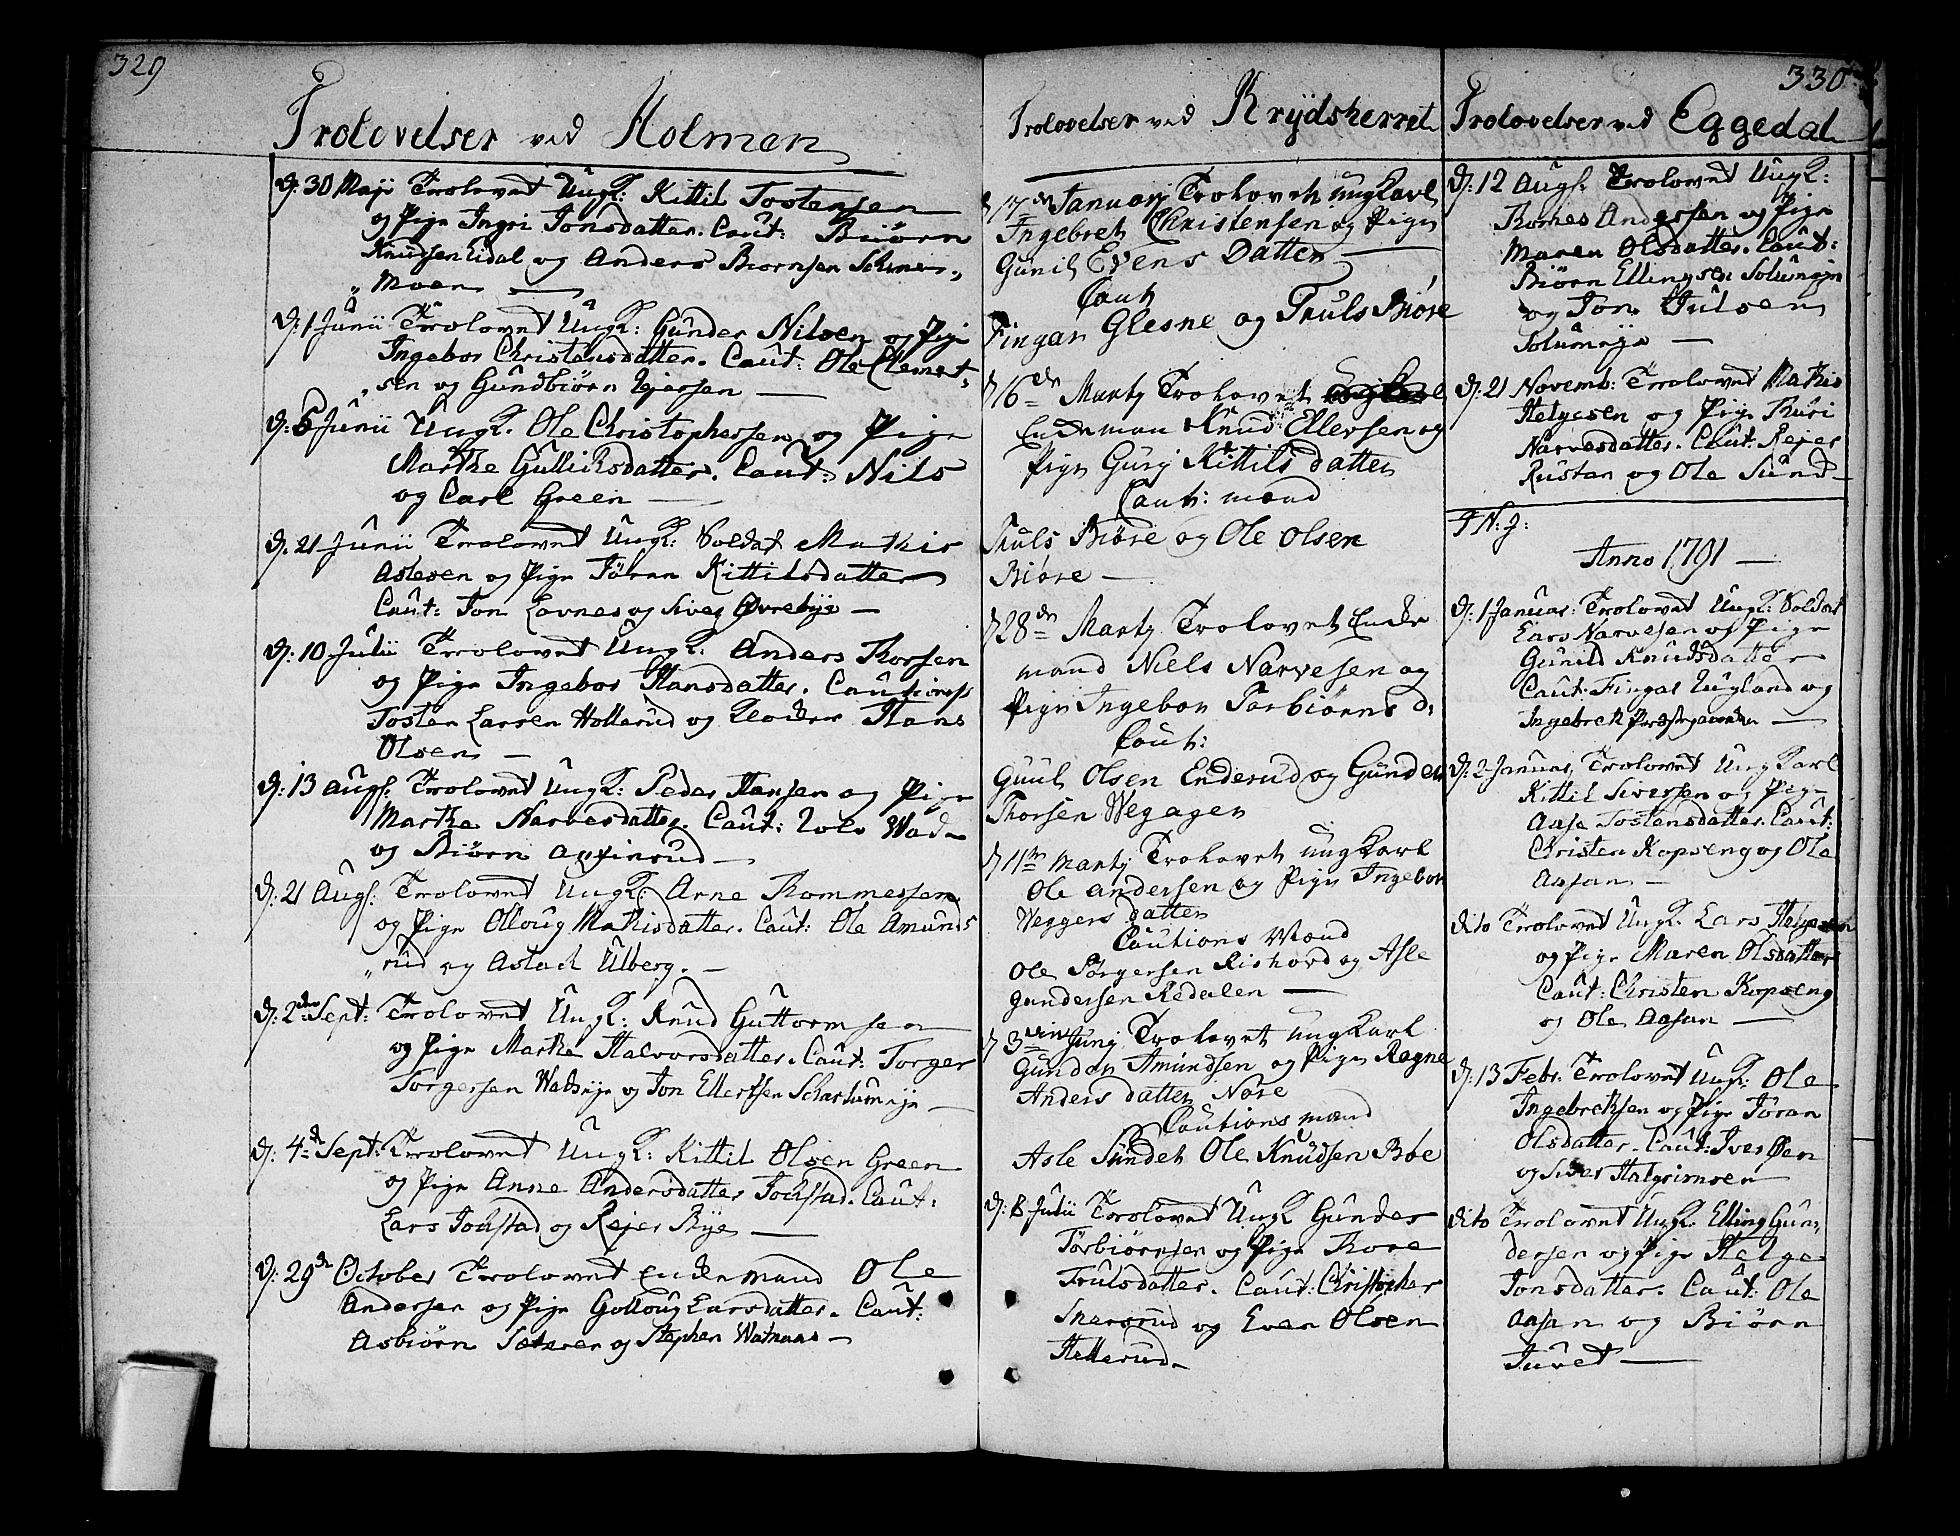 329
Trolovelser ved Holmen
D: 30 Maji Trolovet Ungk: Kittil Tostensen
og Pige Ingri Jonsdatter. Caut: Biørn
Knudsen Eidal og Anders Biørnsen
„ Moen —
D: 1 Junii Trolovet Ungk: Gunder Nilsen og Pige
Ingebor Christensdatter. Caut: Ole Clemet-
„ sen og Gundbiørn —
D: 5 Junii Ungk. Ole Christophersen og Pige
Marthe Gulliksdatter. Caut: Nils
og Carl Green —
D. 21 Junii Trolovet Ungk: Soldat Mathis
Aslesen og Pige Jöran Kittilsdatter
Caut: Jon Lovnes og Siver Øvrebye —
D: 10 Julii Trolovet Ungk: Anders Thorsen
og Pige Ingebor Hansdatter.
Tosten Larsen Hollerud og Hans
Olsen —
D: 13 Augs: Trolovet Ungk: Peder Hansen og Pige
Marthe Narvesdatter. Caut: Wad-
og Biørn Anfinrud —
D. 21 Augs: Trolovet Ungk: Arne Thommessen
og Pige Olloug Mathisdatter. Caut: Ole Amunds
„ rud og Aslach Ulberg. —
D: 2den Sept: Trolovet Ungk: Knud Guttormsen
og Pige Marthe Halvorsdatter. Caut: Torger
Torgersen og Jon Ellertsen —
D: 4de Sept: Trolovet Ungk: Kittil Olsen Green
og Pige Anne Andersdatter Jokstad. Caut:
Lars Jokstad og Rejer Bye —
D: 29de October Trolovet Enckemand Ole
Andersen og Pige Golloug Larsdatter. Caut:
Asbiørn og Stephen Watnaas —
Trolovelser ved Krydsherret
D 17de Januarj Trolovet ungkarl
Ingebret Christensen og Pige
Gunil Evens Datter —
Caut
Fingar Glesne og Truls Biøre
D 16de Martj Trolovet
Enckeman Knud Ellevsen og
Pige Gurj Kittils datter
Caut: mænd
Truls Biøre og Ole Olsen
Biøre —
D 28de Martj Trolovet Encke
mand Niels Narvesen og
Pige Ingebor Torbiørns d:
Caut:
Guul Olsen Enderud og Gunder
Thorsen Wegager
D 11te Martj Trolovet ungkarl
Ole Andersen og Pige Ingebor
Veggers datter
Cautions Mænd
Ole Torgersen Rishovd og Asle
Gundersen Redalen —
D 3die Junj Trolovet ungkarl
Gunder Amundsen og Pige Ragne
Anders datter Nore
Cautions mænd
Asle Sundet Ole Knudsen Bøe
D: 8 Julii Trolovet Ungk Gunder
Torbiørnsen og Pige Thore
Trulsdatter. Caut: Christopher
Snersrud og Even Olsen
Hellerud —
330
Trolovelser ved Eggedal
D: 12 Augs: Trolovet Ungk:
Thomes Anderssen og Pige
Maren Olsdatter. Caut:
Biørn Ellingsen Solumsje
og Jon Julsen
Solumsje —
D. 21 Novemb: Trolovet Mathis
Helgesen og Pige Thuri
Narvesdatter. Caut: Rejer
Rustan og Ole Sund —
I N: J:
Anno 1791 —
D: 1 Januar: Trolovet Ungk: Soldat
Lars Narvesen og Pige
Gunild Knudsdatter
Caut: Fingar Ugland og
Ingebreth —
D: 2 Januar: Trolovet Ungkarl
Kittil Siversen og Pige
Aase Tostensdatter. Caut:
Christen Kopseng og Ole
Aasan —
dito Trolovet Ungk. Lars Helgesen
og Pige Maren Olsdatter
Caut: Christen Kopseng
og Ole Aasan —
D: 13 Febr. Trolovet Ungk: Ole
Ingebrethsen og Pige Jöran
Olsdatter. Caut: Iver Øen
og Siver Halgrimsen
dito Trolovet Ungk. Elling Gun-
dersen og Pige Helge
Jonsdatter. Caut: Ole
Aasan og Biørn
Juvet —